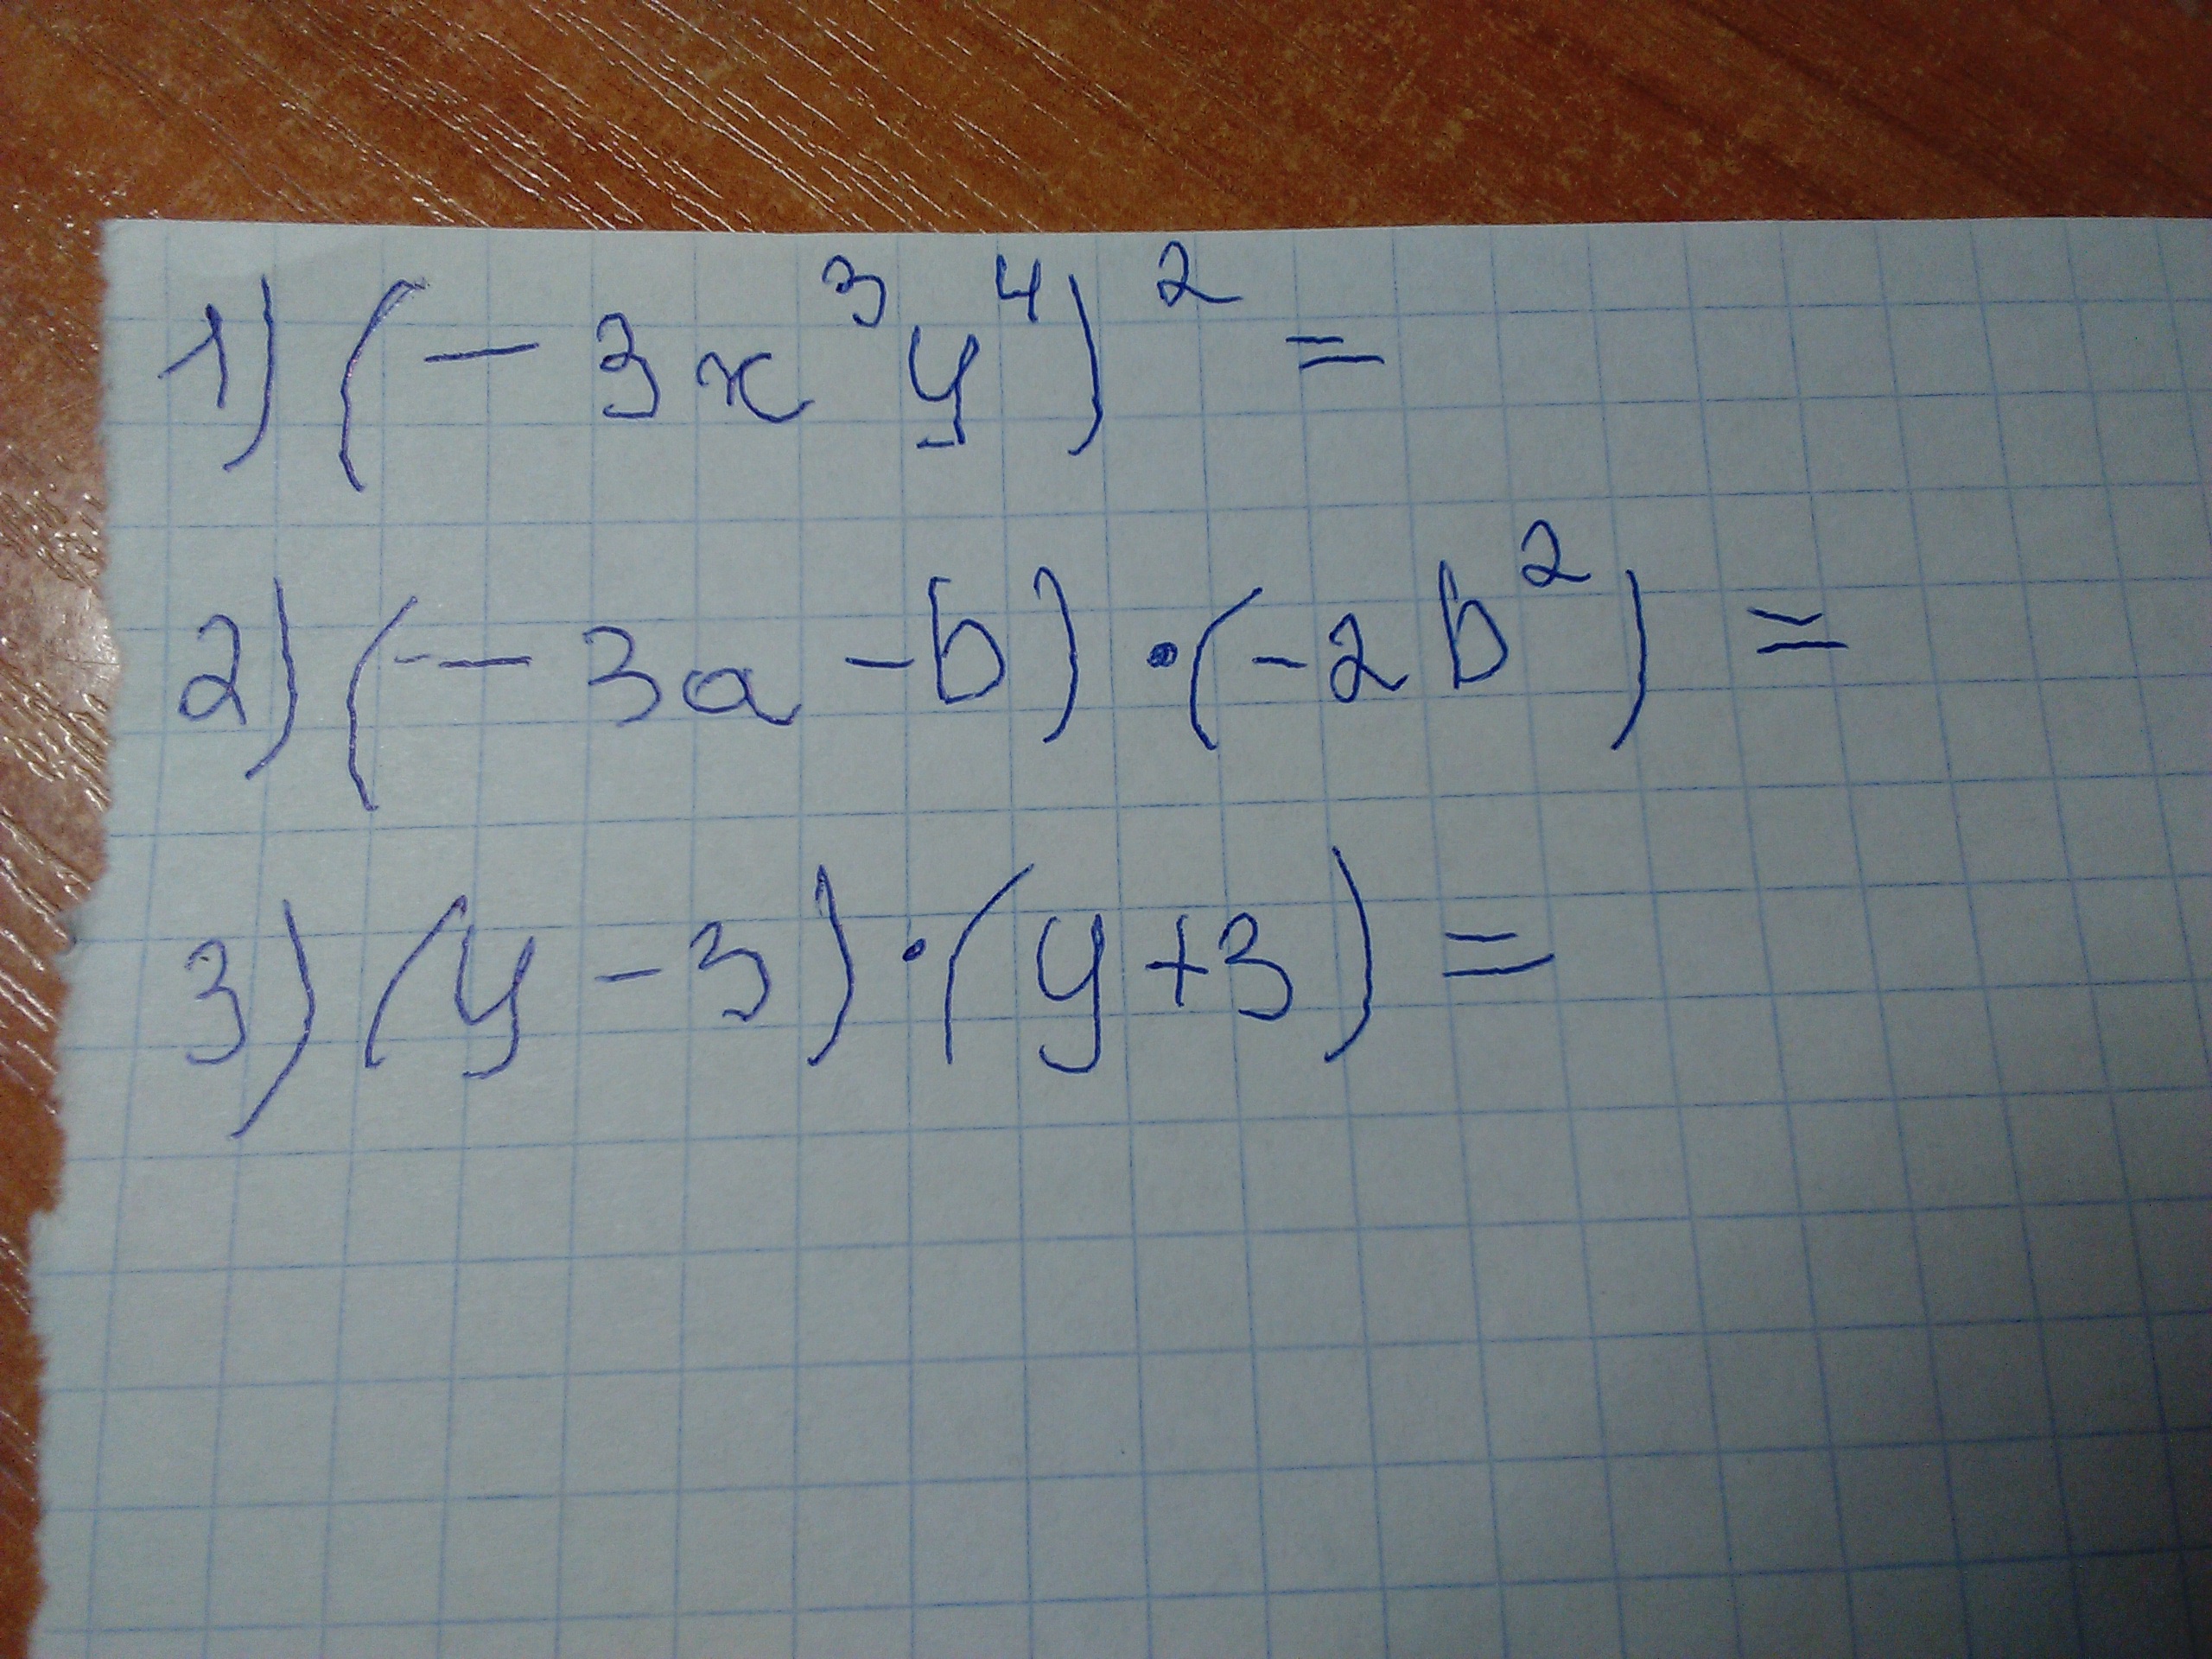 1) (-3x³y⁴)² =
2) (-3a-b)·(-2b²) =
3) (y-3)·(y+3) =